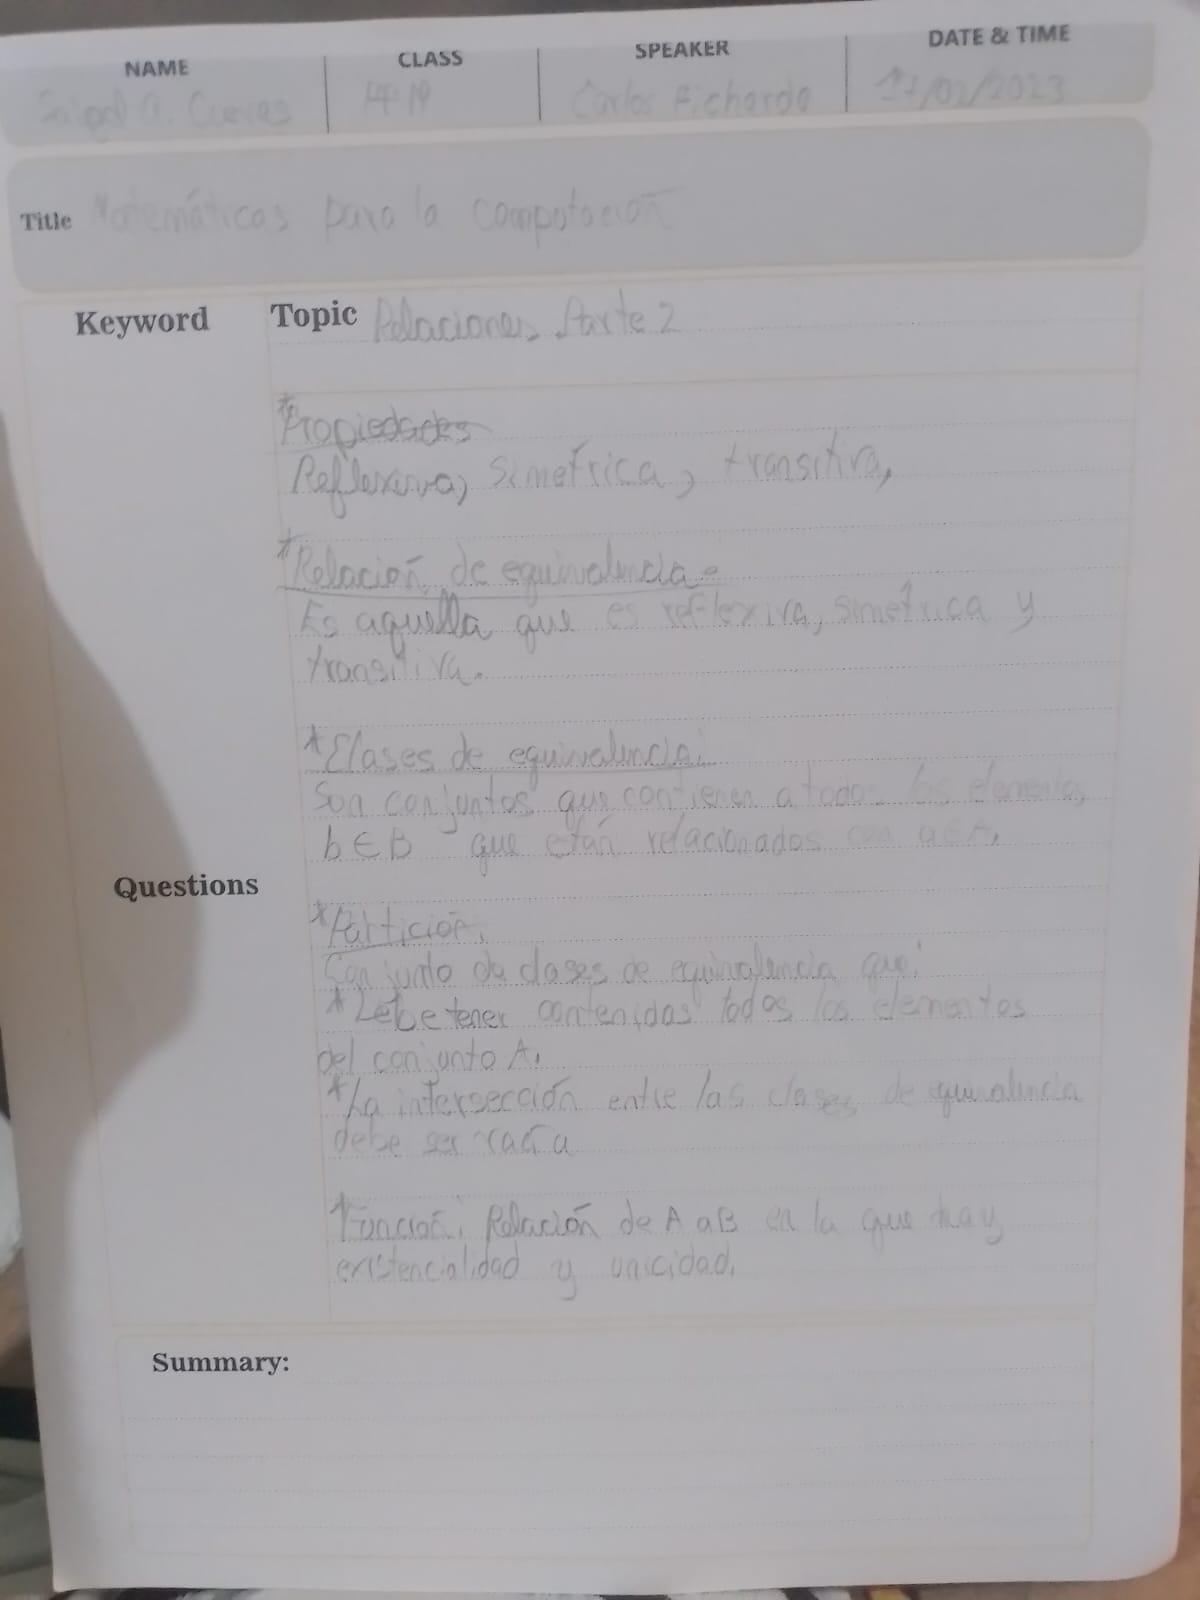 NAME CLASS SPEAKER DATE & TIME
a. Cuevas Carlos Pichardo 17/02/2023
Title Matemáticas para la computación
Keyword Topic Relaciones Parte 2
*Propiedades
Reflexiva, simetrica, transitiva,
*Relación de equivalencia.
Es aquella que es reflexiva, simetrica y
transitiva.
*Clases de equivalencia:
Son conjuntos que contienen a todos los elementos
b∈B que están relacionados con a∈A.
Questions
*Partición.
Conjunto de clases de equivalencia que:
*Debe tener contenidos todos los elementos
del conjunto A.
*La intersección entre las clases de equivalencia
debe ser vacía
*Función. Relación de A a B en la que hay
existencialidad y unicidad.
Summary: